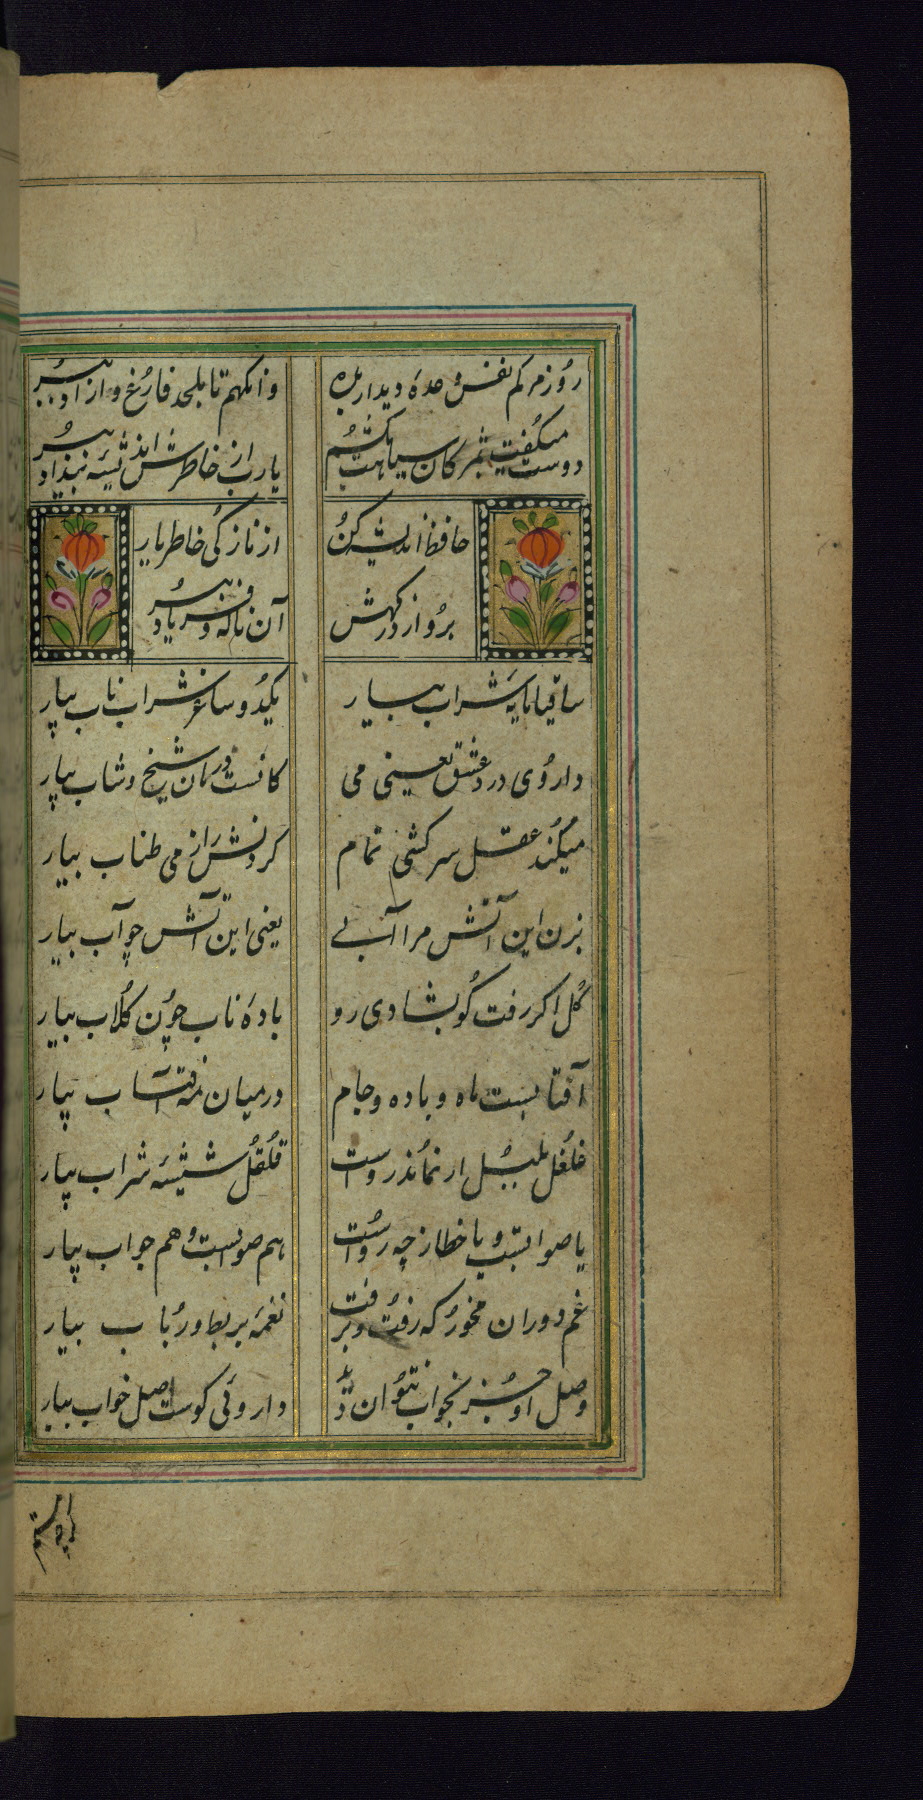 روز مرگم نفسی وعده دیدار بده
وانگهم تا بلحد فارغ و ازاد ببر
دوست میکفت بمژکان سیاهت بکشم
یارب از خاطرش اندیشه بیداد ببر
حافظ اندیشه کن
از نازکی خاطر یار
برو از درکهش
آن ناله و فریاد ببر
ساقیا مایه شراب بیار
یکدو ساغر شراب ناب بیار
داروی درد عشق یعنی می
کانست درمان شیخ و شاب بیار
میکند عقل سرکشی تمام
کردنش را ز می طناب بیار
بزن این آتش مرا آبی
یعنی این آتش چو آب بیار
کل اکر رفت کو بشادی رو
باده ناب چون کلاب بیار
آفتابست ماه و باده و جام
درمیان مه آفتاب بیار
غلغل بلبل ار نماند رواست
قلقل شیشه شراب بیار
یا صوابست و یا خطا
هم صوابست و هم جواب بیار
غم دوران مخور که رفت و برفت
نغمه بربط و رباب بیار
وصل او جز بخواب نتوان دید
داروئی کوست اصل خواب بیار